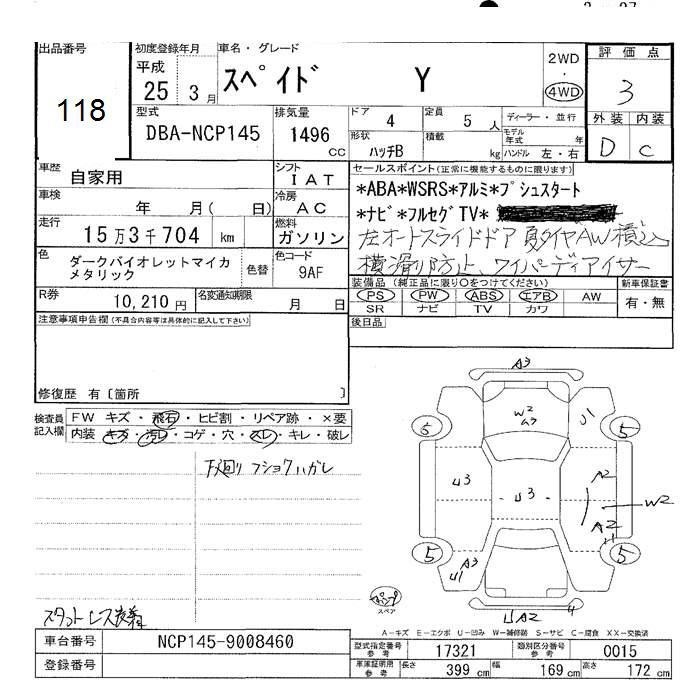 出品番号
118
初度登録年月
平成
25 3 月
車名・グレード
スペイド Y
2WD
・
4WD
評価点
3
外装 内装
D C
型式
DBA-NCP145
排気量
1496
CC
ドア
4
定員
5 人
ディーラー・並行
形状
ハッチB
積載
kg
モデル年式
年
ハンドル 左・右
車歴
自家用
シフト
I A T
車検
年 月( 日)
冷房
A C
走行
15万3千704 km
燃料
ガソリン
色
ダークバイオレットマイカ
メタリック
色替
色コード
9AF
R券
10,210 円
名変通知期限
月 日
セールスポイント(正常に機能するものに限ります)
*ABA*WSRS*アルミ*プシュスタート
*ナビ*フルセグTV*
左オートスライドドア 夏タイヤAW積込
横滑り防止、ワイパーディアイサー
装備品 (純正品に限り○をつけてください)
PS PW ABS エアB AW
SR ナビ TV カワ
新車保証書
有・無
注意事項申告欄(不具合内容等は具体的に記入して下さい)
後日品
修復歴 有〔箇所 〕
検査員
記入欄
FW キズ・飛石・ヒビ割・リペア跡・×要
内装 キズ・汚レ・コゲ・穴・スレ・キレ・破レ
下廻り フショクハガレ
A3
W2
A3
U1
5
5
U3
U3
A2
W2
A2
5
5
A3
U1
U A2
4
スペア
A-キズ E-エクボ U-凹み W-補修跡 S-サビ C-腐食 XX-交換済
車台番号
NCP145-9008460
登録番号
型式指定番号
参考
17321
類別区分番号
参考
0015
車庫証明用
参考
長さ
399 cm
幅
169 cm
高さ
172 cm